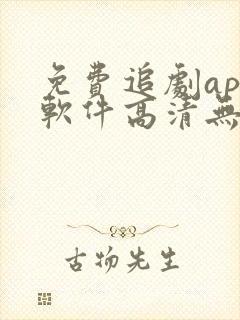 免費追劇ap
軟件高清無
古物先生